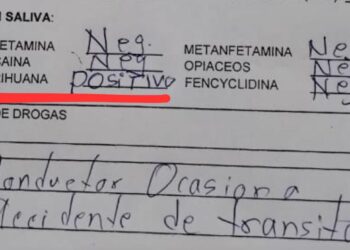 N SALIVA:
ETAMINA Neg. METANFETAMINA Ne
AINA Neg OPIACEOS Ne
RIHUANA POSITIVO FENCYCLIDINA Ne
DE DROGAS
onductor Ocasiona
ccidente de transit